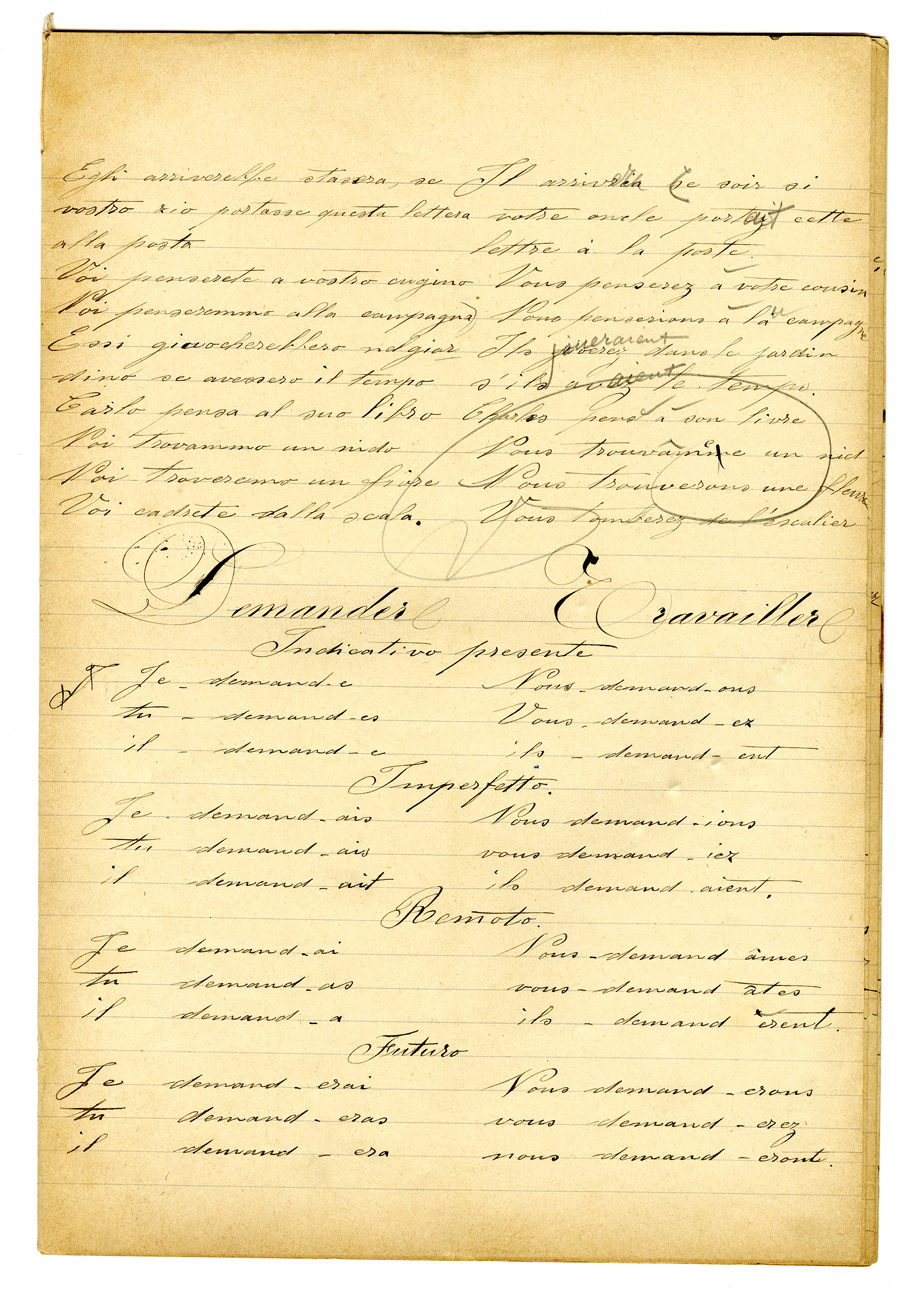 Egli arriverebbe stasera, se Il arrivera ce soir si
vostro zio portasse questa lettera votre oncle portait cette
alla posta lettre à la poste.
Voi penserete a vostro cugino Vous penserez à votre cousin
Noi penseremmo alla campagna Nous penserions à la campagne
Essi giuocherebbero nel giar Ils joueraient dans le jardin
dino se avessero il tempo s'ils avaient le temps.
Carlo pensa al suo libro Charles pens à son livre
Noi trovammo un nido Nous trouvâme un nid
Noi troveremo un fiore Nous trouverons une fleur
Voi cadrete dalla scala. Vous tomberez de l'escalier
Demander Travailler
Indicativo presente
Je - demand-e Nous - demand-ons
tu - demand-es Vous - demand-ez
il - demand-e ils - demand-ent
Imperfetto.
Je - demand-ais Nous demand-ions
tu demand-ais vous demand-iez
il demand-ait ils demand-aient.
Remoto.
Je demand-ai Nous-demand âmes
tu demand-as vous-demand âtes
il demand-a ils - demand èrent.
Futuro
Je demand-erai Nous demand-erons
tu demand-eras vous demand-erez
il demand-era nous demand-eront.